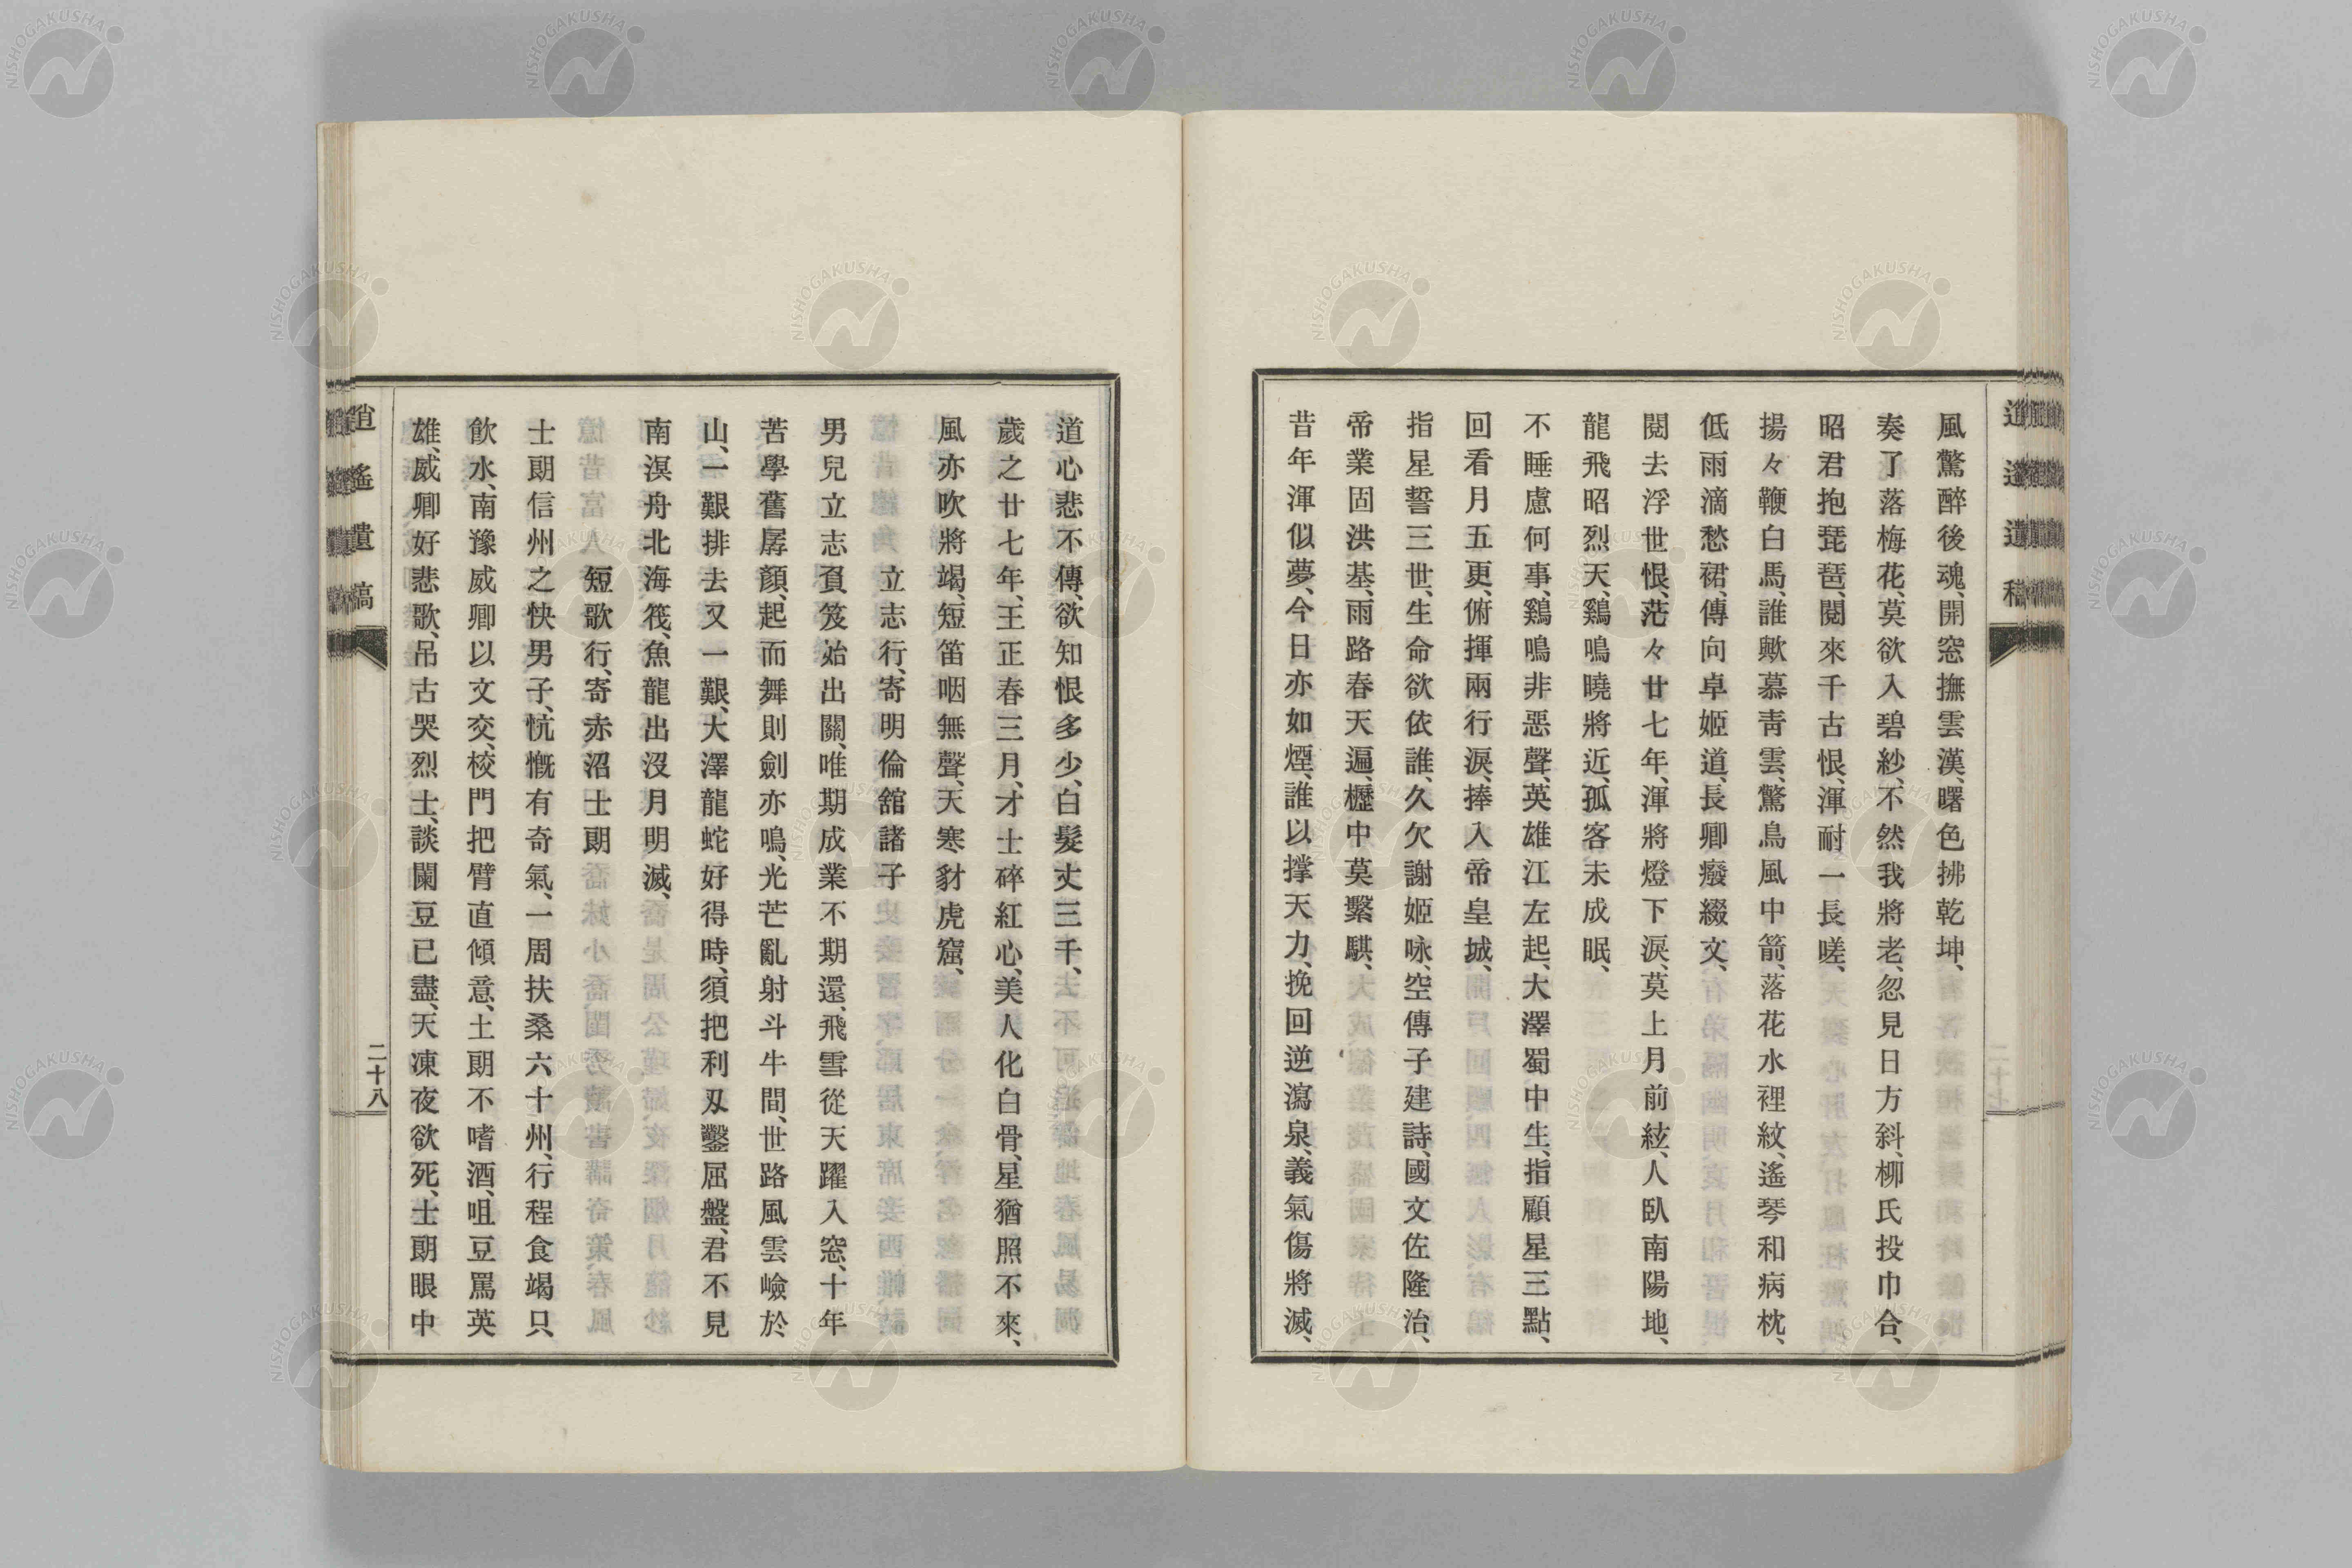 風驚醉後魂、開窓撫雲漢、曙色拂乾坤、
奏了落梅花、莫欲入碧紗、不然我將老、忽見日方斜、柳氏投巾合、
昭君抱琵琶、閱來千古恨、渾耐一長嗟、
揚々鞭白馬、誰歟慕靑雲、驚鳥風中箭、落花水裡紋、遙琴和病枕、
低雨滴愁裙、傳向卓姬道、長卿癈綴文、
閱去浮世恨、茫々廿七年、渾將燈下淚、莫上月前絃、人臥南陽地、
龍飛昭烈天、鷄鳴曉將近、孤客未成眠、
不睡慮何事、鷄鳴非惡聲、英雄江左起、大澤蜀中生、指顧星三點、
回看月五更、俯揮兩行淚、捧入帝皇城、
指星誓三世、生命欲依誰、久欠謝姬咏、空傳子建詩、國文佐隆治、
帝業固洪基、雨路春天遍、櫪中莫繫騏、
昔年渾似夢、今日亦如煙、誰以撑天力、挽回逆瀉泉、義氣傷將滅、
道心悲不傳、欲知恨多少、白髮丈三千、
歲之廿七年、王正春三月、才士碎紅心、美人化白骨、星猶照不來、
風亦吹將竭、短笛咽無聲、天寒豺虎窟、
立志行、寄明倫舘諸子
男兒立志負笈始出關、唯期成業不期還、飛雪從天躍入窓、十年
苦學舊孱顏、起而舞則劍亦鳴、光芒亂射斗牛間、世路風雲嶮於
山、一艱排去又一艱、大澤龍蛇好得時、須把利刄鑿屈盤、君不見
南溟舟北海筏、魚龍出沒月明滅、
短歌行、寄赤沼士朗
士朗信州之快男子、忼慨有奇氣、一周扶桑六十州、行程食竭只、
飮水、南豫威卿以文交、校門把臂直傾意、士朗不嗜酒、咀豆罵英
雄、威卿好悲歌、吊古哭烈士、談闌豆已盡、天凍夜欲死、士朗眼中
逍遙遺稿
二十八